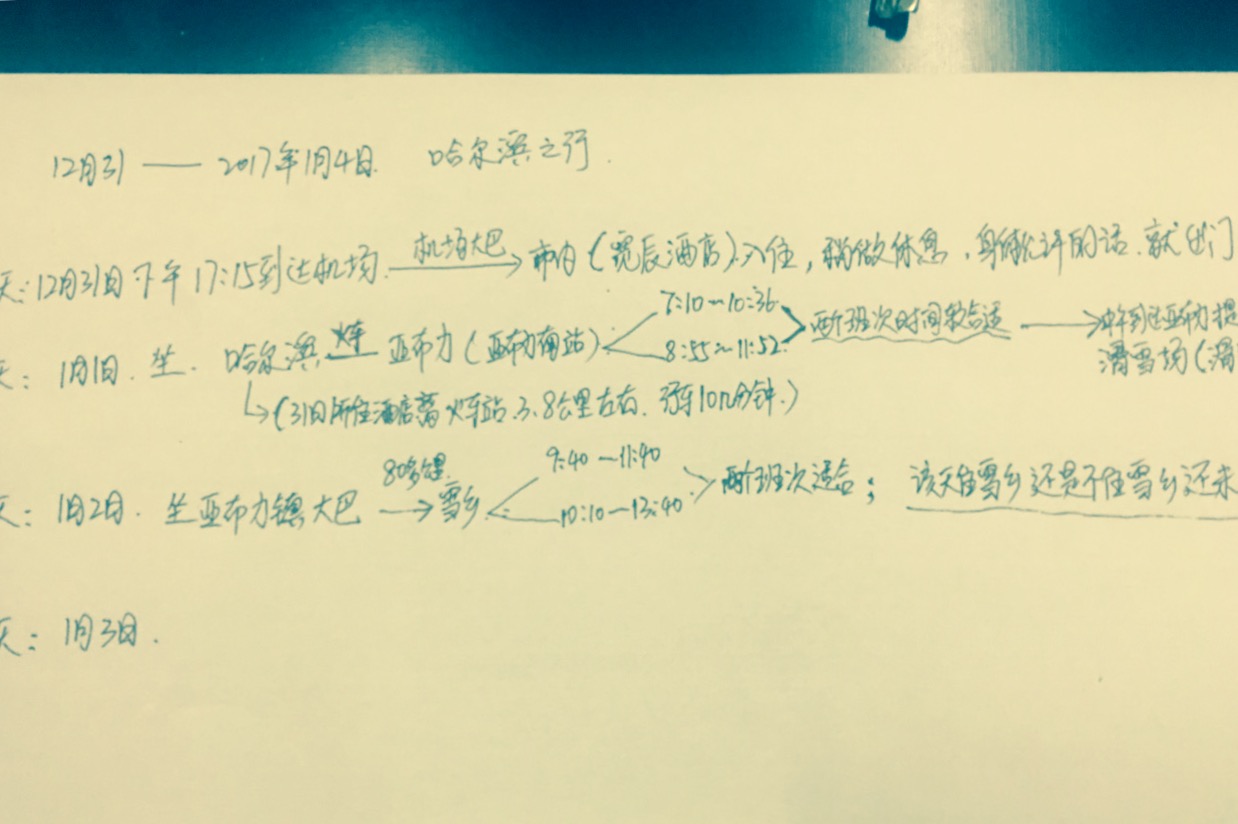 12月31 —— 2017年1月4日. 哈尔滨之行.
天:12月31日下午17:15到达机场. 机场大巴→ 市内(宽辰酒店)入住,稍做休息,身体允许的话.就出门
天: 1月1日. 坐. 哈尔滨 火车 亚布力(亚布力南站) 7:10~10:36 8:55~11:52. 两个班次时间较合适 → 中午到达亚布力
滑雪场(滑
↳(31日所住酒店离火车站3.8公里左右.行车10几分钟.)
天: 1月2日. 坐亚布力镇大巴 80多公里→ 雪乡 9:40—11:40 10:10—13:40 两个班次适合; 该天住雪乡还是不住雪乡还未
天: 1月3日.